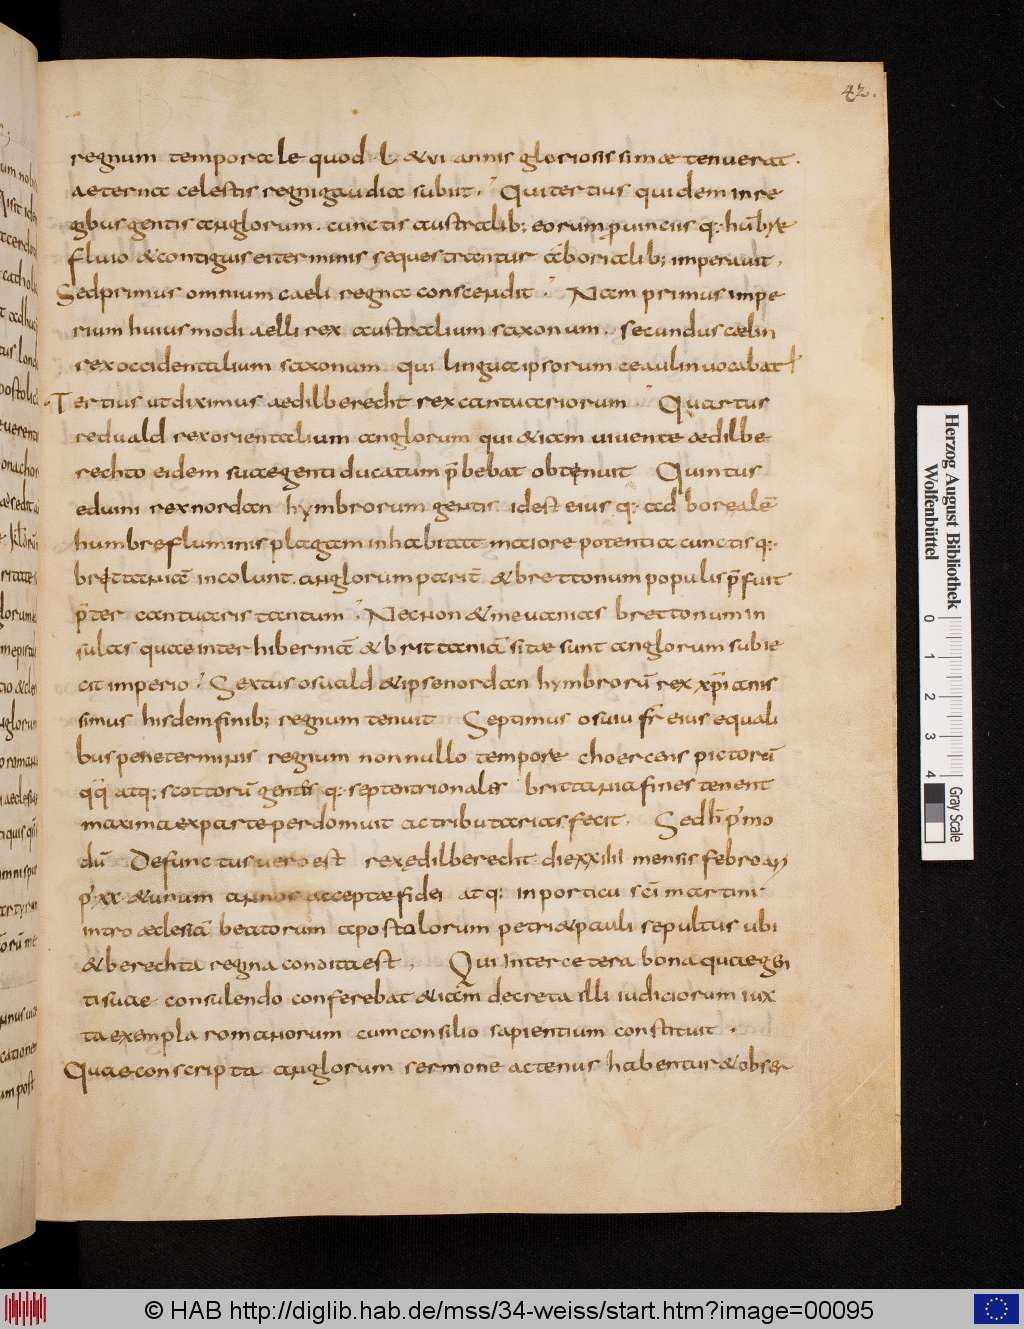 42.
regnum temporale quod · L · & vi annis gloriosissimae tenuerat.
aeternae celestis regni gaudia subiit. Qui tertius quidem in re
gibus gentis anglorum. cunctis australib; eorum puinciis q: hūbre
fluio & contiguis ei terminis sequestrantur a borialib; imperauit.
Sed primus omnium caeli regna conscendit. Nam primus impe
rium huiusmodi aelli rex australium saxonum. secundus caelin
rex occidentalium saxonum qui lingua ipsorum ceaulin uocabat
Tertius ut diximus aedilberecht rex cantuariorum. Quartus
reduald rex orientalium anglorum qui & iam uiuente aedilbe
rechto eidem suae genti ducatum p̄bebat obtenuit Quintus
eduini rex nordan hymbrorum gentis idest eius q: ad borealē
humbre fluminis plagam inhabitat maiore potentia cunctis q:
brittaniā incolunt. anglorum pariт̄ & brettonum populis p̄fuit
p̄ter cantuaris tantum. Necnon & meuanias brettonum in
sulas quae inter hiberniā & brittaniā sitae sunt anglorum subie
cit imperio. Sextus osuald & ipse nordan hymbrorū rex xp̄ianis
simus hisdem finib; regnum tenuit Septimus osuiu fr̄ eius equali
bus pene terminis regnum nonnullo tempore choercens pictorū
q̄q̄ atq; scottorū gentes q: septentrionales brittania fines tenent
maxima ex parte perdomuit ac tributarias fecit. Sed h̄ p̓mo
dū Defunctus uero est rex ędilberecht die xxiiii mensis februarii
p̓ xx · & unum annos acceptae fidei atq: in porticu sc̄i martini
intro aeclesiā beatorum apostolorum petri & pauli sepultus ubi
& berechta regina condita est. Qui inter cetera bona quae gen
ti suae consulendo conferebat & iam decreta illi iudiciorum iux
ta exempla romanorum cum consilio sapientium constituit.
Quae conscripta anglorum sermone actenus habentur & obser
Herzog August Bibliothek
Wolfenbüttel
0 1 2 3 4
Gray Scale
© HAB http://diglib.hab.de/mss/34-weiss/start.htm?image=00095